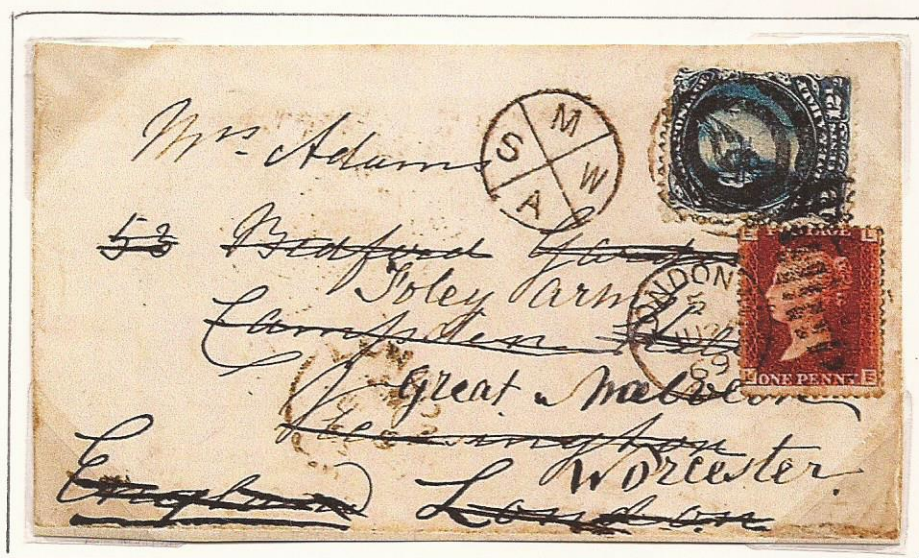 Mrs Adams
53 Bedford Gardens
Foley Arms
Campden Hill
Great Malvern
Kensington
Worcester
England London
S M W A
LONDON
5
69
E L
ONE PENNY
E